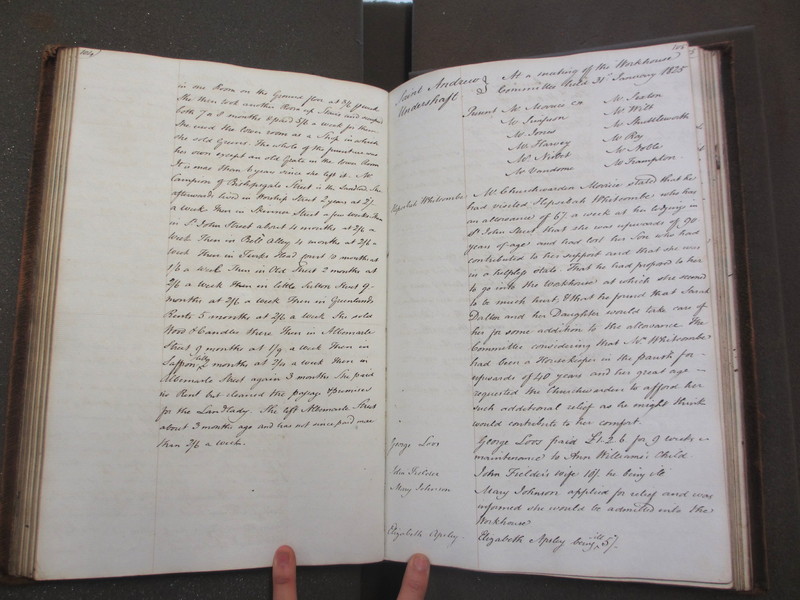 in one Room on the Ground floor at 2/6 p week
She then took another Room up Stairs and occupied
both 7 or 8 months & paid 5/6 a week for them
She used the lower room as a Shop in which
she sold Greens. The whole of the furniture was
her own except an old Grate in the lower Room
It is more than 6 years since she left it. Mr
Campion of Bishopsgate Street is the Landlord. She
afterwards lived in Worship Street 2 years at 2/-
a week then in Skinner Street a few weeks then
in St John Street about 4 months at 2/6 a
week Then in Bell Alley 4 months at 2/6 a
week Then in Turks Head Court 10 months at
1/6 a week Then in Old Street 2 months at
2/6 a week then in little Sutton Street 9
months at 2/6 a week Then in Greenlands
Rents 5 months at 2/6 a week She sold
Wood & Candles there Then in Albemarle
Street 9 months at 1/9 a week Then in
Saffron Hill 2 months at 2/4 a week then in
Albemarle Street again 3 months She paid
no Rent but cleaned the passage & premises
for the Landlady. She left Albemarle Street
about 3 months ago and has not since paid more
than 2/6 a week.
Saint Andrew
Undershaft
At a meeting of the Workhouse
Committee held 31st January 1825
Present Mr Morrice CW
Mr Simpson
Mr Jones
Mr Harvey
Mr Nisbet
Mr Vandome
Mr Saxton
Mr Witt
Mr Shuttleworth
Mr Ray
Mr Noble
Mr Frampton
Hepsebah Whitcombe
Mr Churchwarden Morrice stated that he
had visited Hepsebah Whitcombe who has
an allowance of 6/- a week at her lodging in
St John Street that she was upwards of 90
years of age and had lost her Son who had
contributed to her support and that she was
in a helpless state. That he had proposed to her
to go into the Workhouse at which she seemed
to be much hurt, & that he found that Sarah
Dalton and her Daughter would take care of
her for some addition to the allowance The
Committee considering that Mrs Whitcombe
had been a Housekeeper in the parish for
upwards of 40 years and her great age
requested the Churchwarden to afford her
such additional relief as he might think
would contribute to her comfort.
George Loos
George Loos paid £1.2.6 for 9 weeks
maintenance to Ann Williams's Child.
John Fielder
John Fielder's wife 10/- he being ill
Mary Johnson
Mary Johnson applied for relief and was
informed she would be admitted into the
Workhouse
Elizabeth Apsley
Elizabeth Apsley being ill 5/-